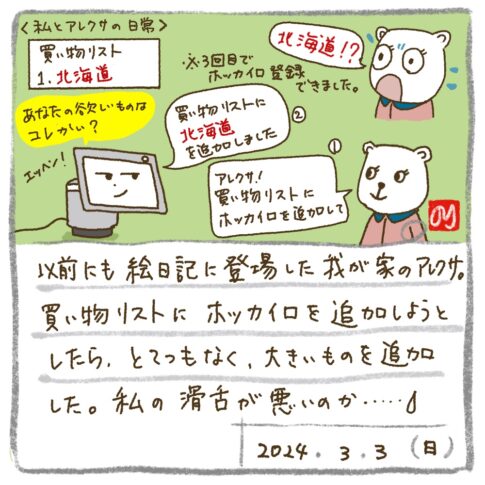 〈私とアレクサの日常〉
買い物リスト
1.北海道
あなたの欲しいものは
コレかい?
エッヘン!
※3回目で
ホッカイロ登録
できました。
北海道!?
①
アレクサ!
買い物リストに
ホッカイロを追加して
②
買い物リストに
北海道
を追加しました
以前にも絵日記に登場した我が家のアレクサ。
買い物リストにホッカイロを追加しようと
したら、とてつもなく、大きいものを追加
した。私の滑舌が悪いのか……
2024.3.3(日)